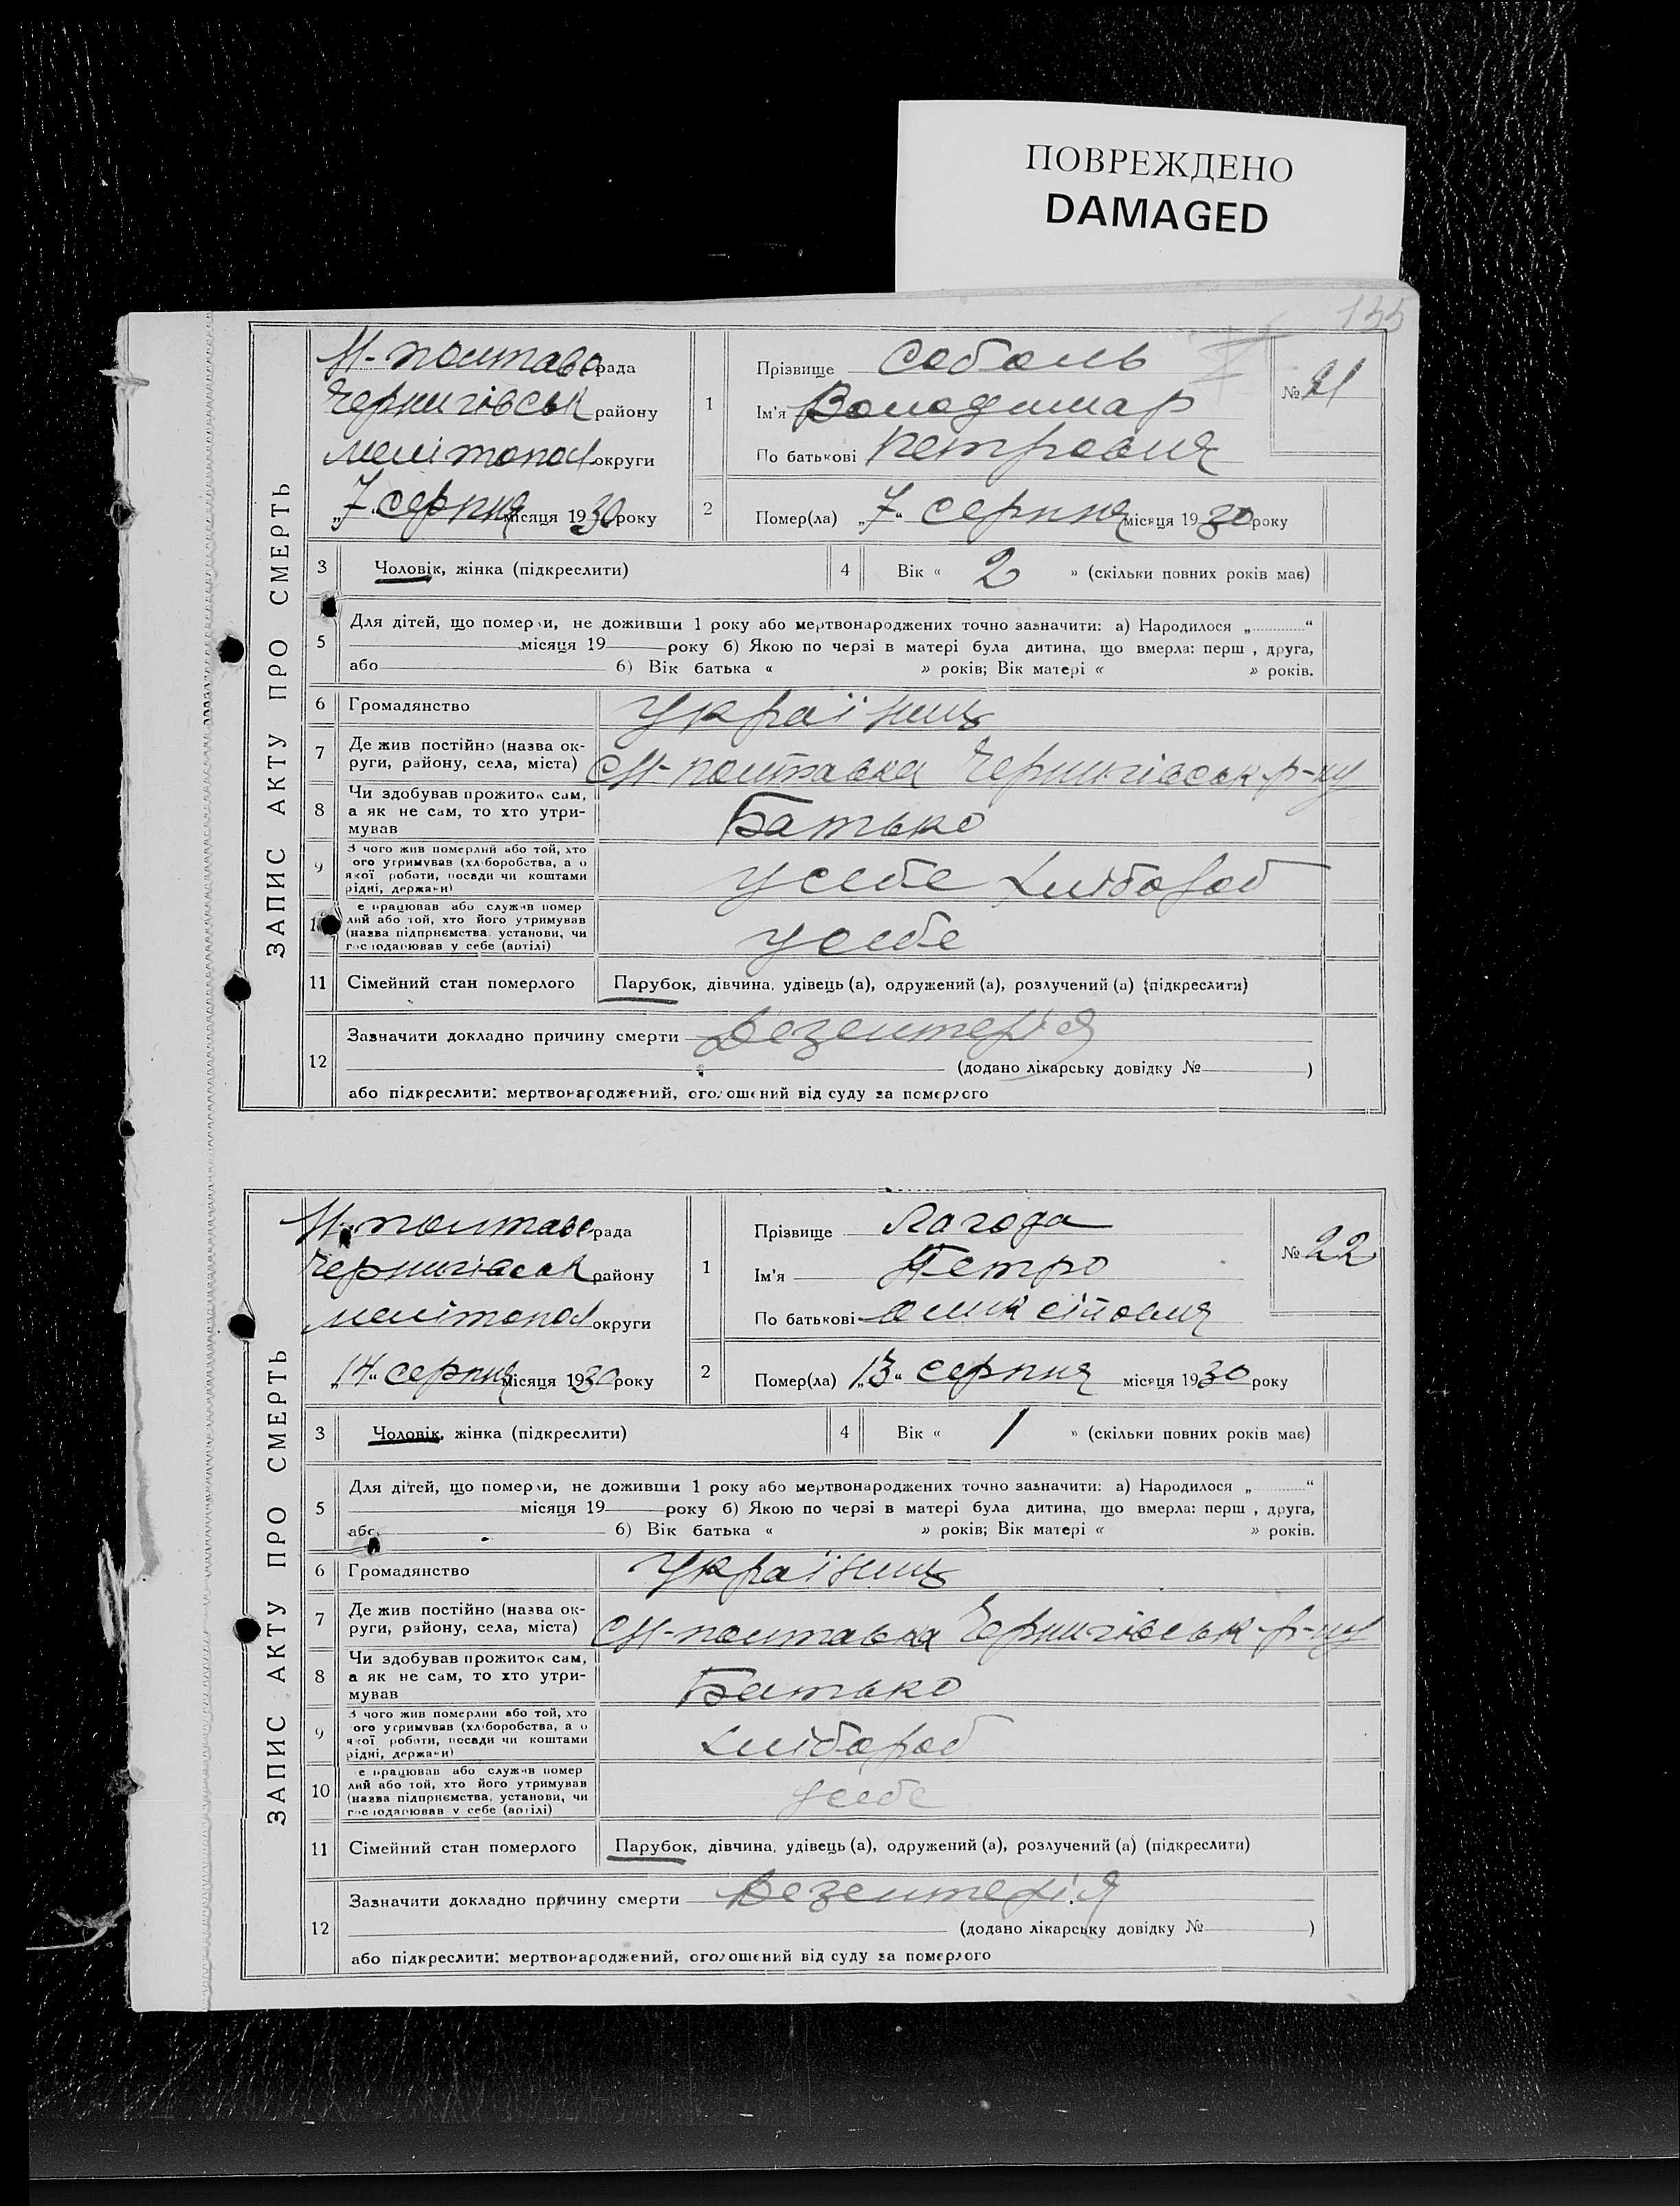 ПОВРЕЖДЕНО
DAMAGED
155
ЗАПИС АКТУ ПРО СМЕРТЬ
Н-полтавс рада
Чернигівськ району
мелітопол округи
„7“ серпня місяця 1930 року
1
Прізвище Соболь
Ім'я Володимар
По батькові Петровия
№ 21
2
Помер(ла) „7“ серпня місяця 1930 року
3 Чоловік, жінка (підкреслити)
4 Вік « 2 » (скільки повних років має)
5
Для дітей, що померли, не доживши 1 року або мертвонароджених точно зазначити: а) Народилося „ “
місяця 19 року б) Якою по черзі в матері була дитина, що вмерла: перш , друга,
або б) Вік батька « » років; Вік матері « » років.
6 Громадянство Українць
7 Де жив постійно (назва ок-
руги, району, села, міста) СН-полтавка Чернигівськ р-ну
8 Чи здобував прожиток сам,
а як не сам, то хто утри-
мував Батько
9 З чого жив померлий або той, хто
ого утримував (хліборобства, а о
якої роботи, посади чи коштами
рідні, держави) усебе Хлібороб
10 е працював або служив помер
лий або той, хто його утримував
(назва підприємства, установи, чи
господарював у себе (артілі) усебе
11 Сімейний стан померлого Парубок, дівчина, удівець (а), одружений (а), розлучений (а) (підкреслити)
12
Зазначити докладно причину смерти Дезентерія
(додано лікарську довідку № )
або підкреслити: мертвонароджений, оголошений від суду за померлого
ЗАПИС АКТУ ПРО СМЕРТЬ
Н-полтавс рада
Чернигівськ району
мелітопол округи
„14“ серпня місяця 1930 року
1
Прізвище Лагода
Ім'я Петро
По батькові
№ 22
2
Помер(ла) „13“ серпня місяця 1930 року
3 Чоловік, жінка (підкреслити)
4 Вік « 1 » (скільки повних років має)
5
Для дітей, що померли, не доживши 1 року або мертвонароджених точно зазначити: а) Народилося „ “
місяця 19 року б) Якою по черзі в матері була дитина, що вмерла: перш , друга,
або б) Вік батька « » років; Вік матері « » років.
6 Громадянство Українць
7 Де жив постійно (назва ок-
руги, району, села, міста) СН-полтавка Чернигівськ р-ну
8 Чи здобував прожиток сам,
а як не сам, то хто утри-
мував Батько
9 З чого жив померлий або той, хто
ого утримував (хліборобства, а о
якої роботи, посади чи коштами
рідні, держави) Хлібороб
10 е працював або служив помер
лий або той, хто його утримував
(назва підприємства, установи, чи
господарював у себе (артілі) усебе
11 Сімейний стан померлого Парубок, дівчина, удівець (а), одружений (а), розлучений (а) (підкреслити)
12
Зазначити докладно причину смерти Дезентерія
(додано лікарську довідку № )
або підкреслити: мертвонароджений, оголошений від суду за померлого